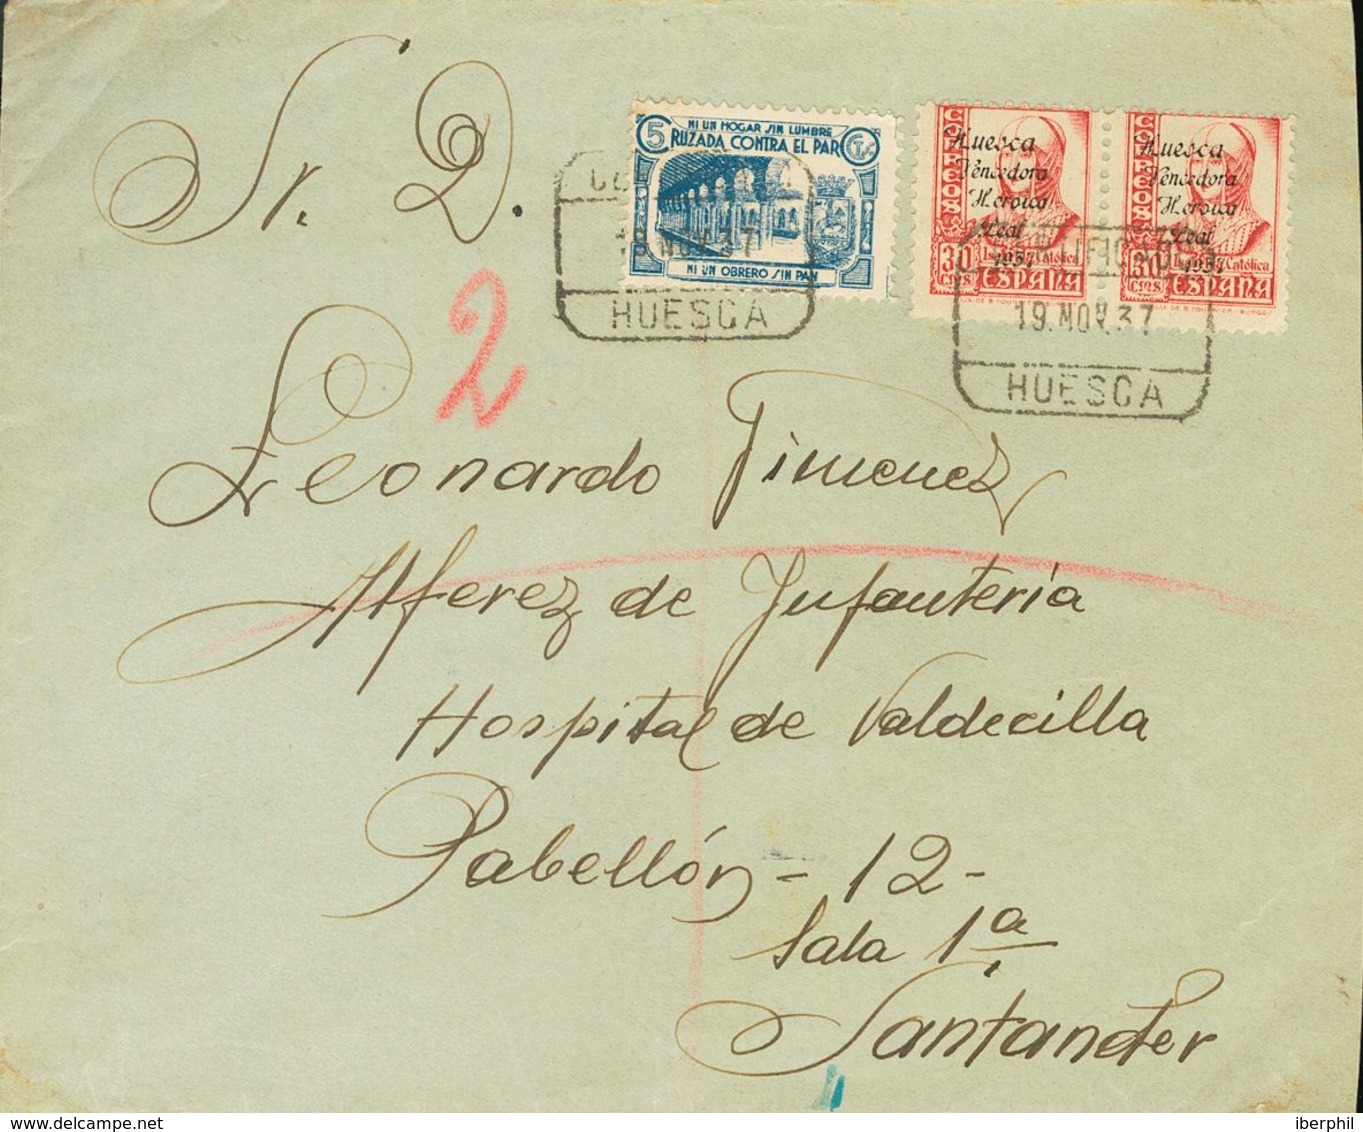 Sr. D.
5 NI UN HOGAR SIN LUMBRE CTS
CRUZADA CONTRA EL PARO
NI UN OBRERO SIN PAN
CORREOS
Huesca
Vencedora
Heroica
Leal
1937
30 CTS
Isabel Católica
ESPAÑA
CORREOS
Huesca
Vencedora
Heroica
Leal
1937
30 CTS
Católica
ESPAÑA
19 NOV 37
HUESCA
CERTIFICADO
19.NOV.37
HUESCA
2
Leonardo Jimenez
Alferez de Infantería
Hospital de Valdecilla
Pabellón - 12 -
Sala 1ª
Santander
iberphil